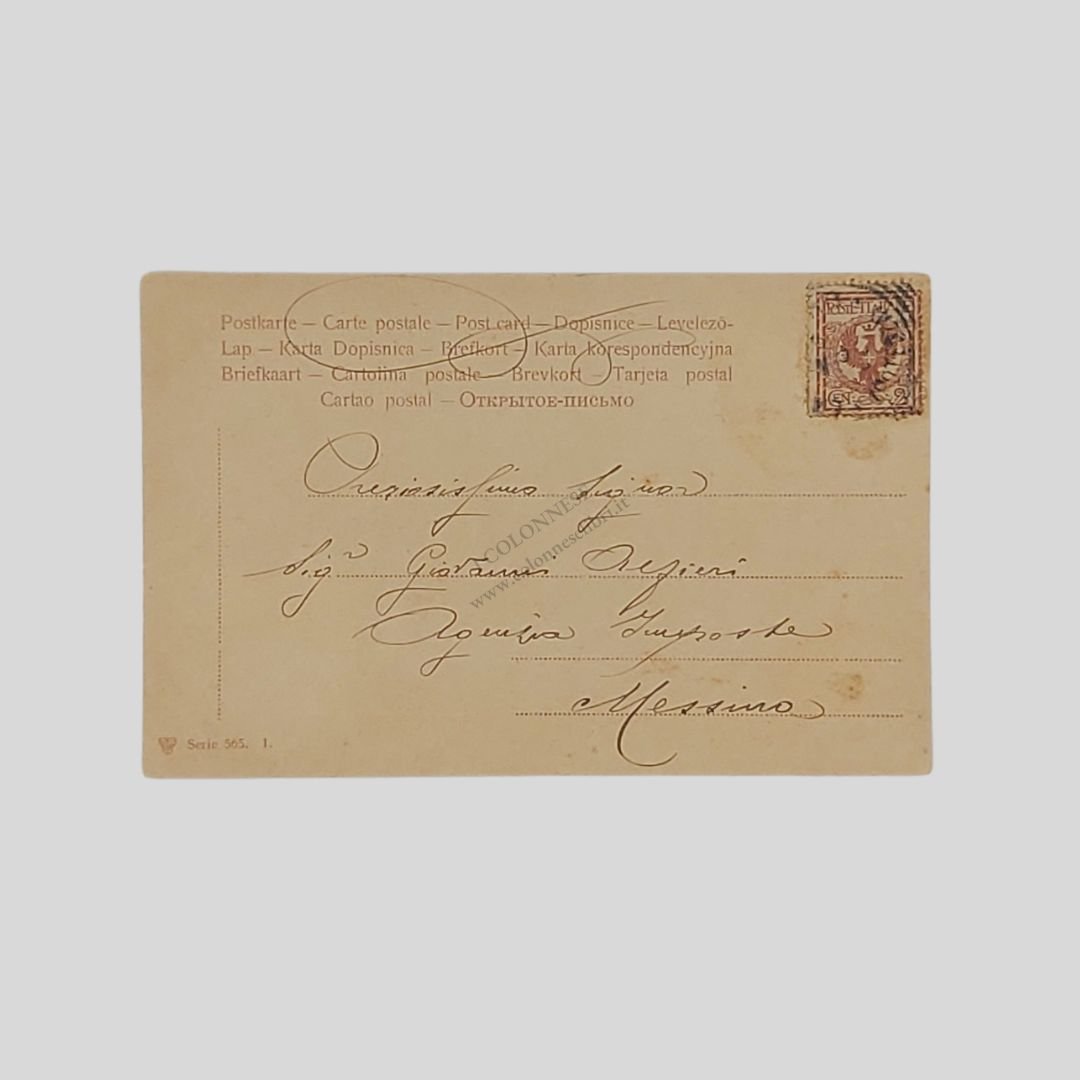 Postkarte — Carte postale — Post card — Dopisnice — Levelező-
Lap — Karta Dopisnica — Brefkort — Karta korespondencyjna
Briefkaart — Cartolina postale — Brevkort — Tarjeta postal
Cartao postal — Открытое-письмо
POSTE ITAL
CEN. 2
Pregiassissimo Signor
Sigr Giovanni
Agenzia Imposte
Messina
COLONNESE
www.colonneselibri.it
Serie 565. 1.